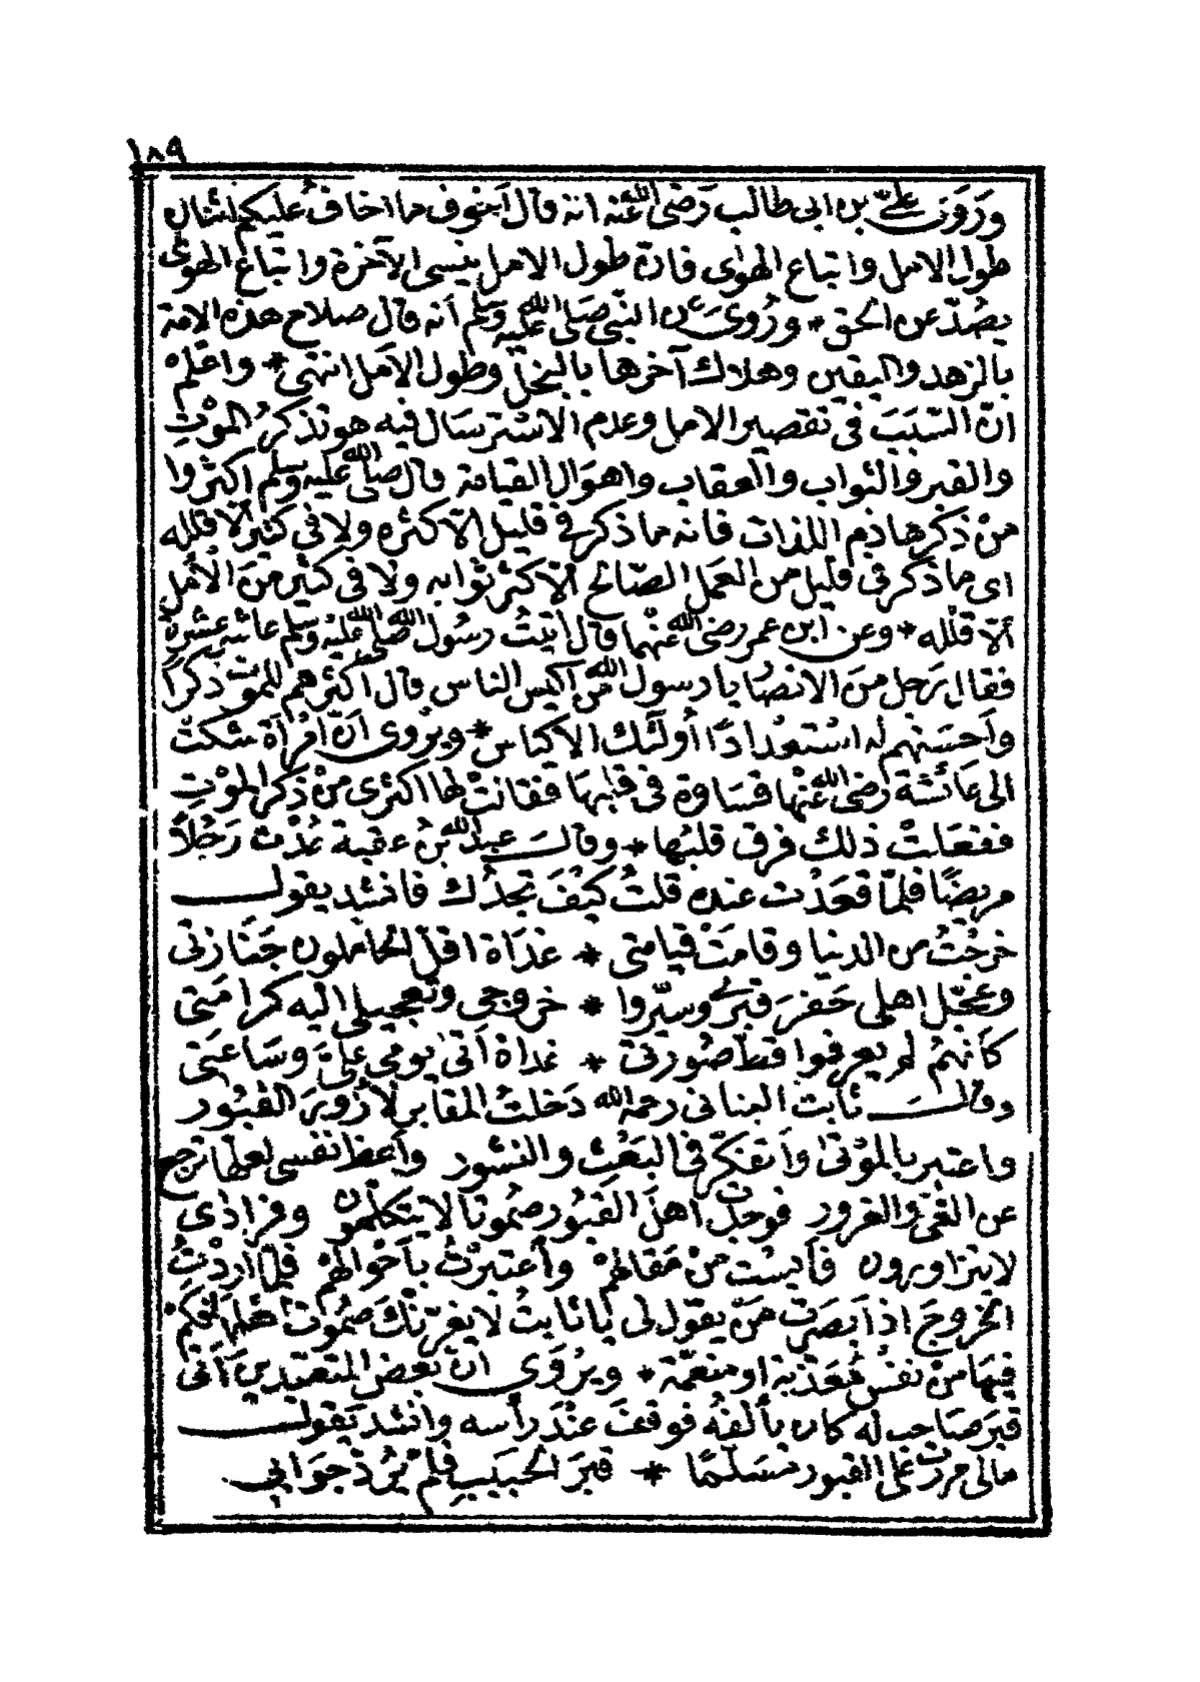 ١٨٩
وروى علي بن ابى طالب رضى الله عنه انه قال اخوف ما اخاف عليكم اثنان
طول الامل واتباع الهوٰى فانّ طول الامل ينسى الآخرة واتباع الهوٰى
يصُدّ عن الحق * ورُوىَ عن النبي صَلى الله عليه وسَلم أنه قال صلاح هذه الامة
بالزهد واليقين وهلاك آخرها بالبخل وطول الأمل انتهى * واعلم
انّ السّبَبَ فى تقصير الامل وعدم الاسْترسَال فيه هو تذكرُ الموْتِ
والقبر والثواب والعقاب واهوَال القيامة قال صلى الله عليه وسلم اكثروا
منْ ذكر هاذم اللذات فانه ما ذكر فى قليل الّا كثره ولا فى كثير الا قلله
اى ما ذكر فى قليل من العمل الصّالح الّا كثر ثوابه ولا فى كثير منَ الأمل
ألّا قلله * وعن ابن عمر رضى الله عنهما قال اتيتُ رسُول الله صَلى الله عليه وسلم عاشر عشرة
فقال رَجل منَ الانصار يا رسول الله منْ أكيس الناس قال اكثرهم للموت ذكرًا
وأحسَنهم له اسْتعْدادًا أولئك الاكياس * ويرْوى أنّ امْرأة شكتْ
الى عائشة رضى الله عنْها قسَاوة فى قلبهَا فقالتْ لها اكثرى منْ ذكر الموْتِ
ففعَلتْ ذلك فرق قلبُها * وقالَ عبد الله بنُ عقبة عُدْت رَجُلاً
مريضًا فلمّا قعَدْت عنده قلتُ كيْفَ تجدُك فانشد يقول
خرجْتُ من الدنيا وقامَتْ قيامتى * غدَاة اقلّ الحاملون جَنَازتى
وعجّل اهلى حَفرَ قبرى وسيّروا * خروجى وتعجيلى اليه كرامَتى
كأنهمُ لم يعرفوا قطّ صُورتى * غداة أتىٰ يومى علىَّ وسَاعَتى
وقالَ ثابت البنانى رحمه الله دَخلتُ المقابر لأزورَ القبُور
واعتبر بالموْتىٰ وأتفكّر فى البَعْث والنشور وأعظ نفسى لعلها ترجع
عن الغىّ والغرور فوجدْت اهلَ القبُور صُموتًا لا يتكلّمون وفرَادٰى
لايتزاورون فأيسْت منْ مَقالهمْ وأعتبرْتُ بأحْوالهُمْ فلمّا أردْتُ
الخروجَ اذا بصَوت مَنْ يقول لى يا ثابتُ لا يغرّنّكَ صُموتُ أهْلها فكمْ
فيهَا منْ نفسٍ مُعَذّبة او منعّمة * ويرْوَى انّ بعْض المتعبّدين أتى
قبرَ صَاحب له كان يألفهُ فوقفَ عنْدَ رأسه وانشد يقول
مالى مررت على القبور مُسَلّمًا * قبرَ الحبيبِ فلمْ يرُدّ جوَابى